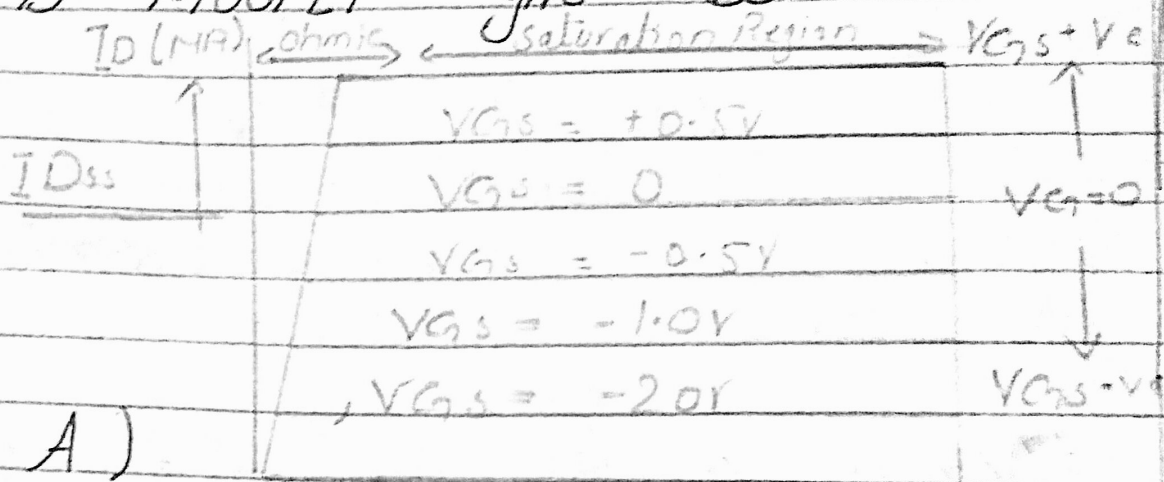 ID (MA) ohmic saturation Region VGs + ve
VGs = +0.5V
IDss VGs = 0 VG=0
VGs = -0.5V
VGs = -1.0V
VGs = -2.0V VGs -ve
A)